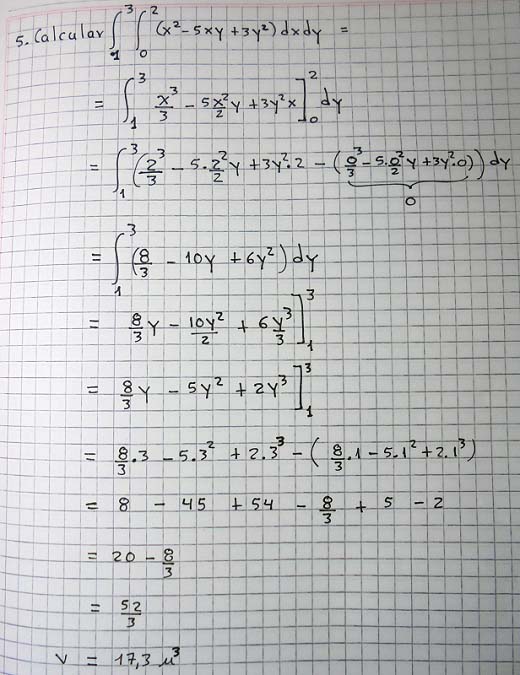 5. Calcular ∫₁³ ∫₀² (x² - 5xy + 3y²) dx dy =
= ∫₁³ x³/3 - 5x²/2 y + 3y²x ]₀² dy
= ∫₁³ (2³/3 - 5.2²/2 y + 3y².2 - (0³/3 - 5.0²/2 y + 3y².0)) dy
0
= ∫₁³ (8/3 - 10y + 6y²) dy
= 8/3 y - 10y²/2 + 6y³/3 ]₁³
= 8/3 y - 5y² + 2y³ ]₁³
= 8/3 .3 - 5.3² + 2.3³ - (8/3 .1 - 5.1² + 2.1³)
= 8 - 45 + 54 - 8/3 + 5 - 2
= 20 - 8/3
= 52/3
V = 17,3 u³